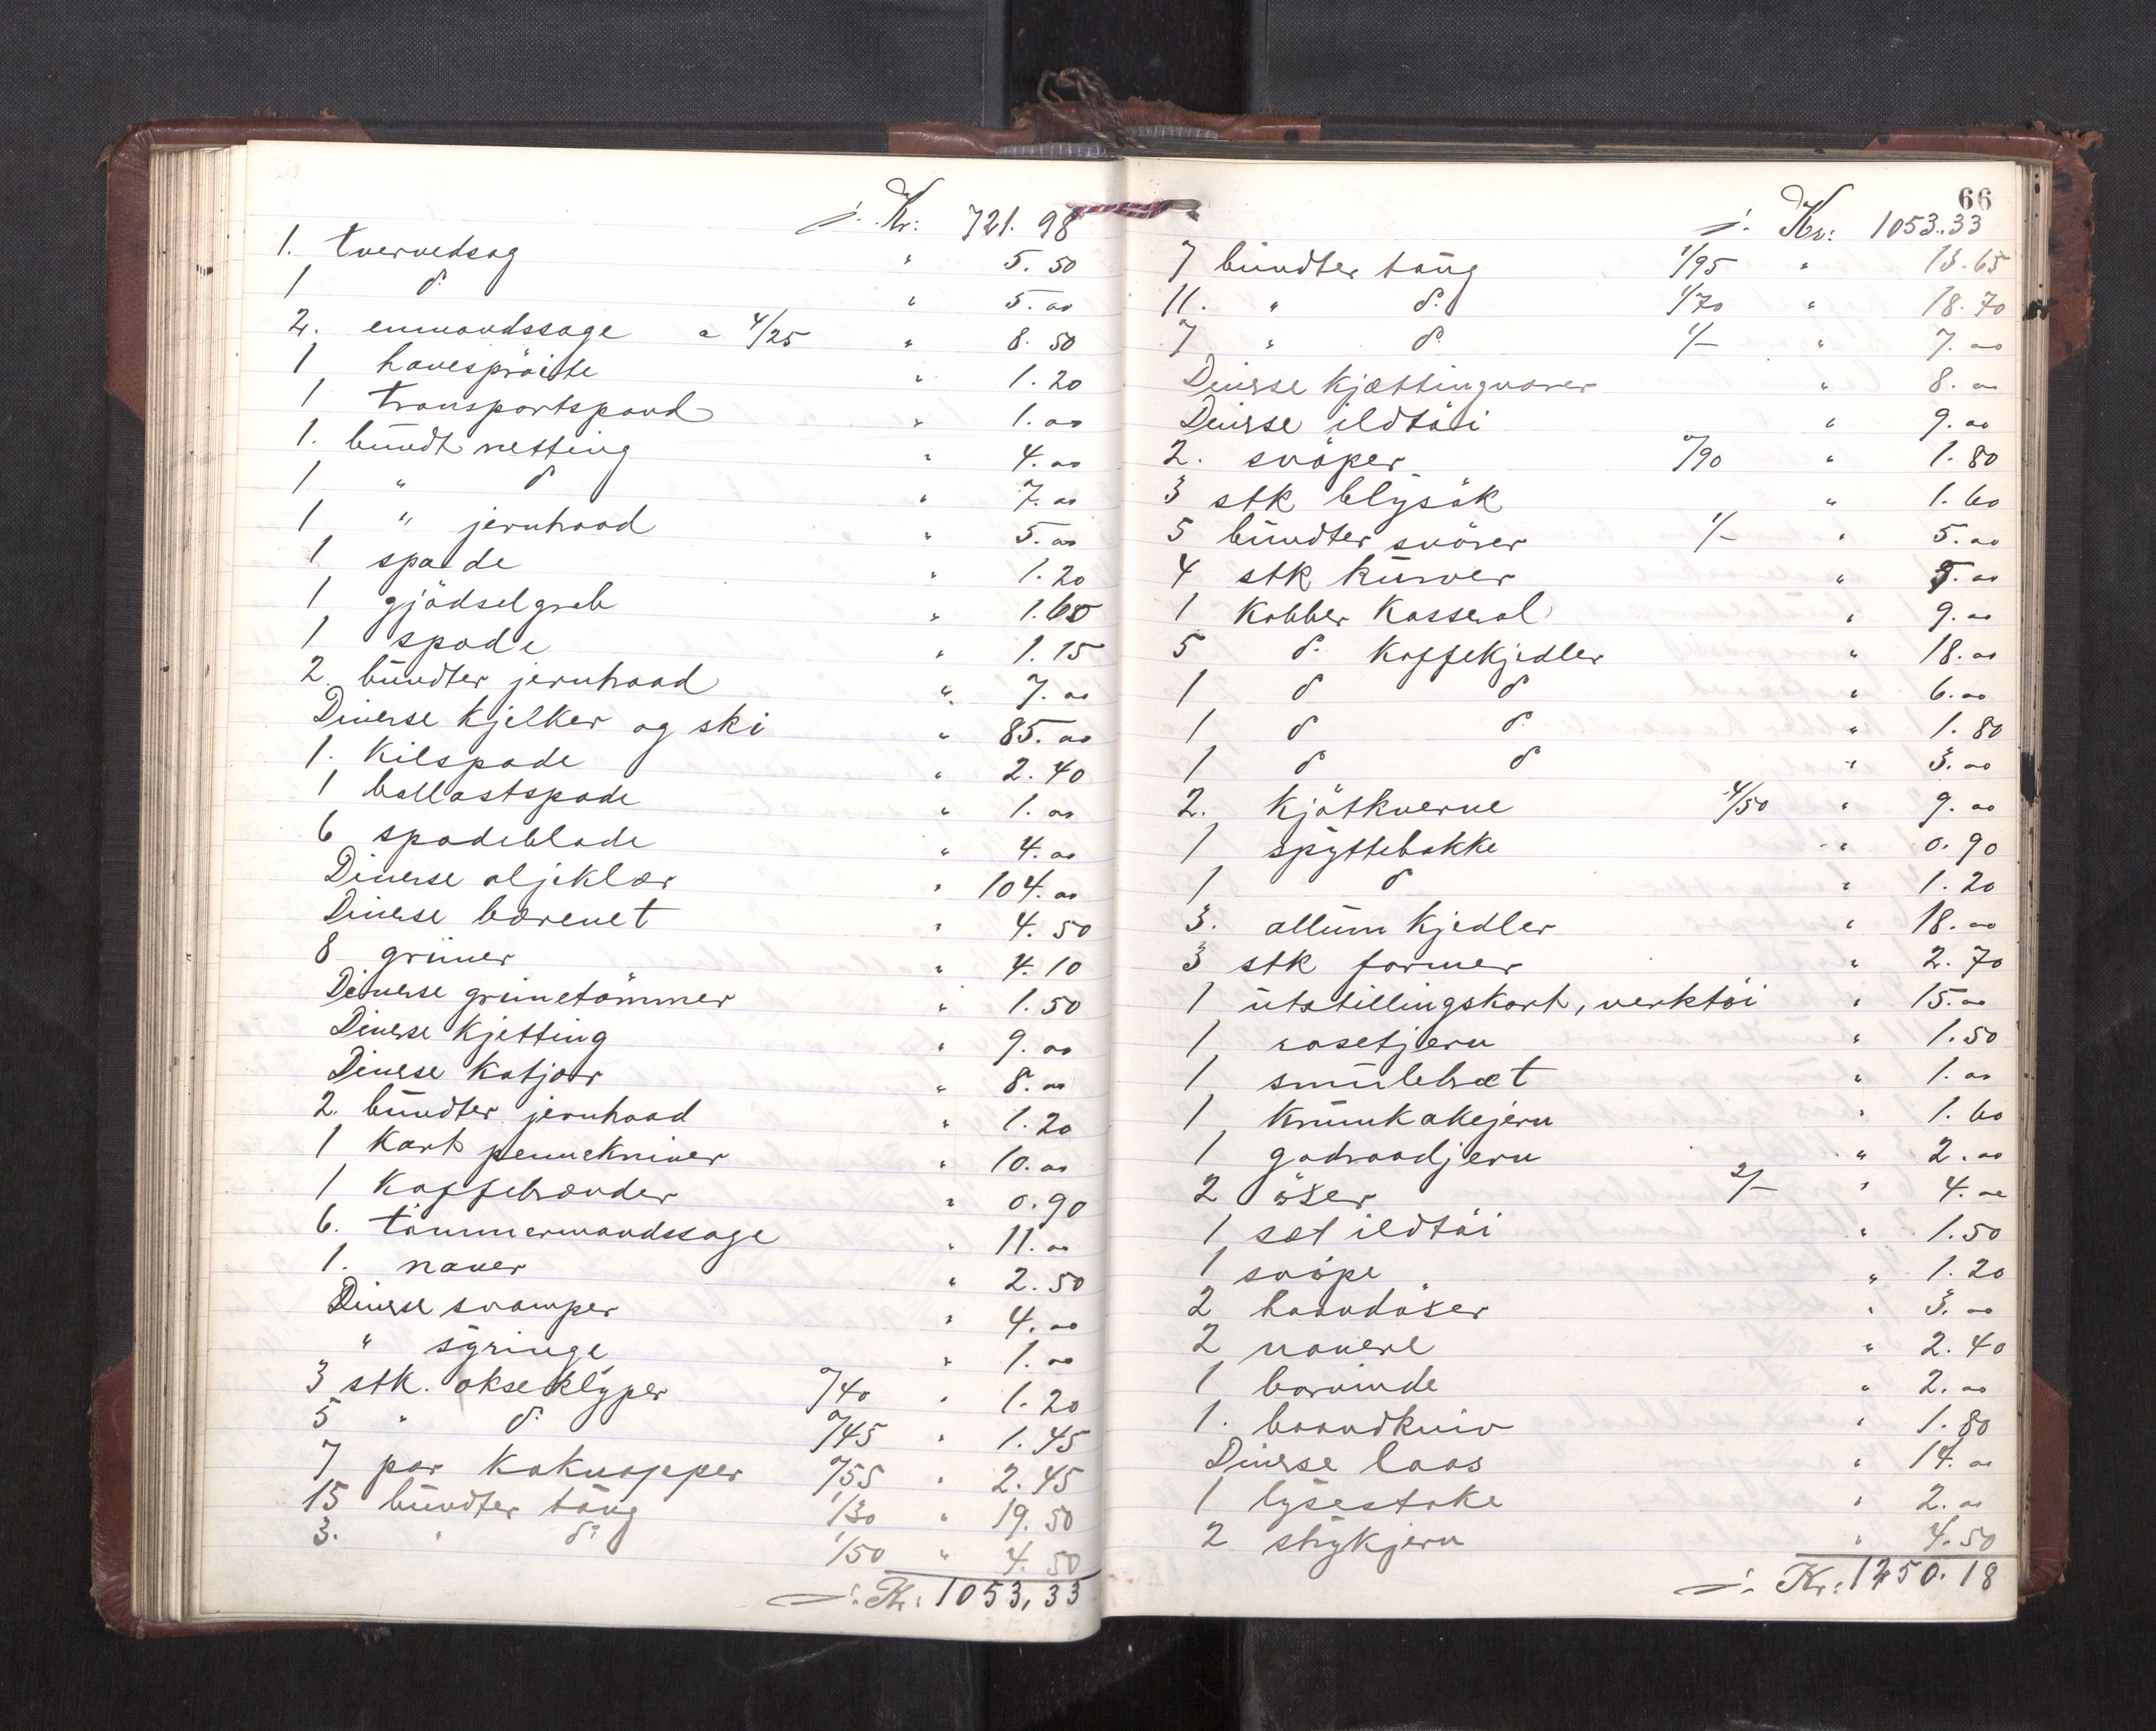 Kr: 721.98
1. tvervedsag " 5.50
1 do " 5.00
2. enmandssage a 4/25 " 8.50
1 havespröite " 1.20
1 transportspand " 1.00
1. bundt netting " 4.00
1 " do " 7.00
1 " jerntraad " 5.00
1 spade " 1.20
1 gjödselgreb " 1.60
1 spade " 1.15
2 bundter jerntraad " 7.00
Diverse kjelker og ski " 85.00
1. Kilspade " 2.40
1 ballastspade " 1.00
6 spadeblade " 4.00
Diverse oljeklær " 104.00
Diverse bærenet " 4.50
8 grimer " 4.10
Diverse grimetömmer " 1.50
Diverse Kjetting " 9.00
Diverse Katjor " 8.00
2. bundter jerntraad " 1.20
1 Kart pennekniver " 10.00
1 Kaffebrænder " 0.90
6. tömmermandssage " 11.00
1. naver " 2.50
Diverse svamper " 4.00
" syringe " 1.00
3 stk. okseklyper 0/40 " 1.20
5 " do 0/45 " 1.45
7 par Koknapper 0/55 " 2.45
15 bundter taug 1/30 " 19.50
3. " do 1/50 " 4.50
Kr: 1053,33
66
Kr: 1053.33
7 bundter taug 1/95 " 13.65
11. " do 1/70 " 18.70
7 " do 1/- " 7.00
Diverse Kjættingvarer " 8.00
Diverse ildtöi " 9.00
2. svöper 0/90 " 1.80
3 stk blysök " 1.60
5 bundter snörer 1/- " 5.00
4 stk kurver " 5.00
1 Kobber Kasserol " 9.00
5 do Kaffekjedler " 18.00
1 do do " 6.00
1 do do " 1.80
1 do do " 3.00
2. Kjötkverne 4/50 " 9.00
1 spyttebakke " 0.90
1 do " 1.20
3. allum Kjedler " 18.00
3 stk former " 2.70
1 utstillingskart, verktöi " 15.00
1 rosetjern " 1.50
1 smulebræt " 1.00
1 Krumkakejern " 1.60
1 godraadjern " 2.00
2 öser 2/- " 4.00
1 sæt ildtöi " 1.50
1 svöpe " 1.20
2 haandöser " 3.00
2 navere " 2.40
1 borvinde " 2.00
1. baandkniv " 1.80
Diverse laas " 14.00
1 lysestake " 2.00
2 strykjern " 4.50
Kr: 1250.18